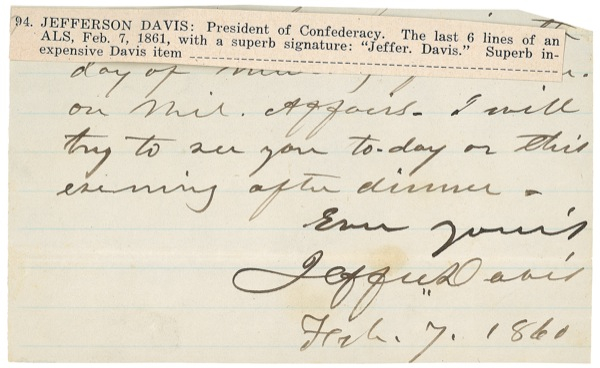 94. JEFFERSON DAVIS: President of Confederacy. The last 6 lines of an
ALS, Feb. 7, 1861, with a superb signature: "Jeffer. Davis." Superb in-
expensive Davis item
day of
on Mil. Affairs - I will
try to see you to-day or this
evening after dinner -
Ever yours
Jeffer. Davis
Feb. 7. 1860